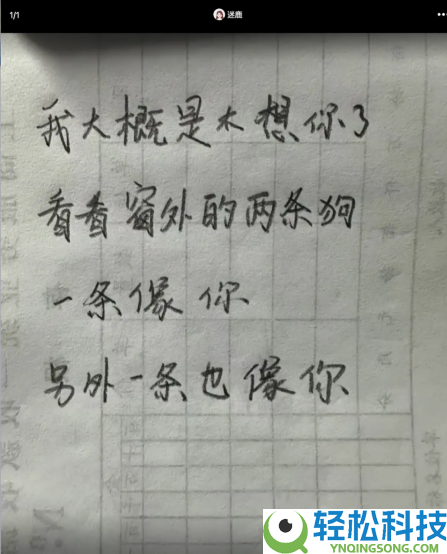 1/1 迷鹿
我大概是太想你了
看看窗外的两条狗
一条像你
另外一条也像你
轻松科技
YNQINGSONG.COM